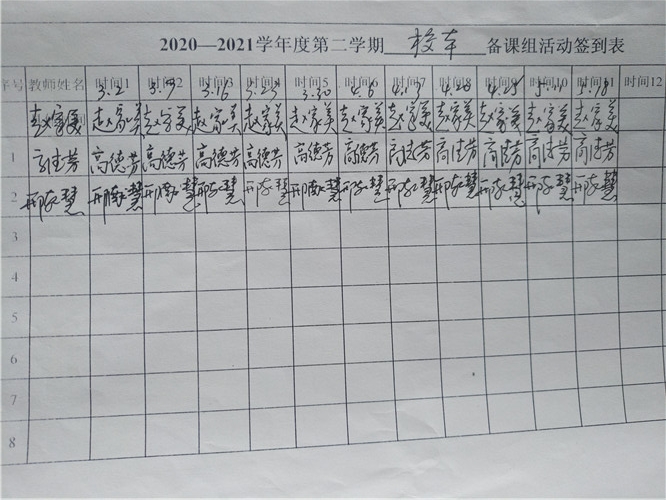 2020—2021学年度第二学期 校本 备课组活动签到表
序号 教师姓名 时间1 时间2 时间3 时间4 时间5 时间6 时间7 时间8 时间9 时间10 时间11 时间12
3.2 3.9 3.16 3.23 3.30 4.6 4.13 4.20 4.25 5.11 5.18
赵家美 赵家美 赵家美 赵家美 赵家美 赵家美 赵家美 赵家美 赵家美 赵家美 赵家美 赵家美
1 高德芳 高德芳 高德芳 高德芳 高德芳 高德芳 高德芳 高德芳 高德芳 高德芳 高德芳 高德芳
2 邢家慧 邢家慧 邢家慧 邢家慧 邢家慧 邢家慧 邢家慧 邢家慧 邢家慧 邢家慧 邢家慧 邢家慧
3
4
5
6
7
8